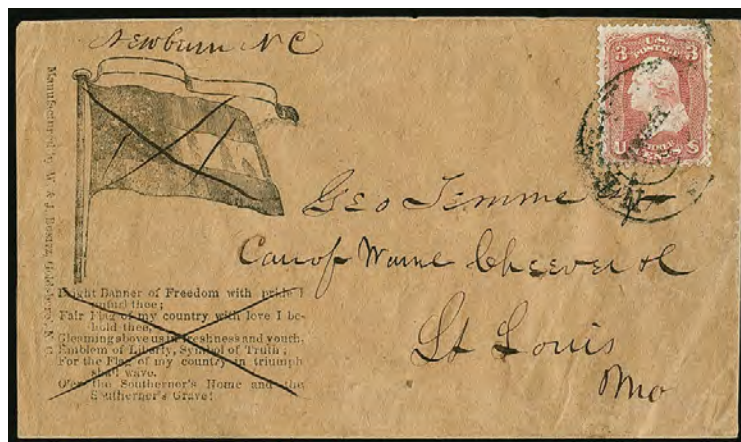 Newburn NC
U.S. POSTAGE
3 3
U CENTS S
Manufactured by W. & J. Bonitz, Goldsboro, N. C.
Geo Temme
Care of Warne Cheever & Co
St Louis
Mo
Bright Banner of Freedom with pride I
unfurl thee;
Fair Flag of my country with love I be-
hold thee,
Gleaming above us in freshness and youth,
Emblem of Liberty, Symbol of Truth;
For the Flag of my country in triumph
shall wave,
O'er the Southerner's Home and the
Southerner's Grave!